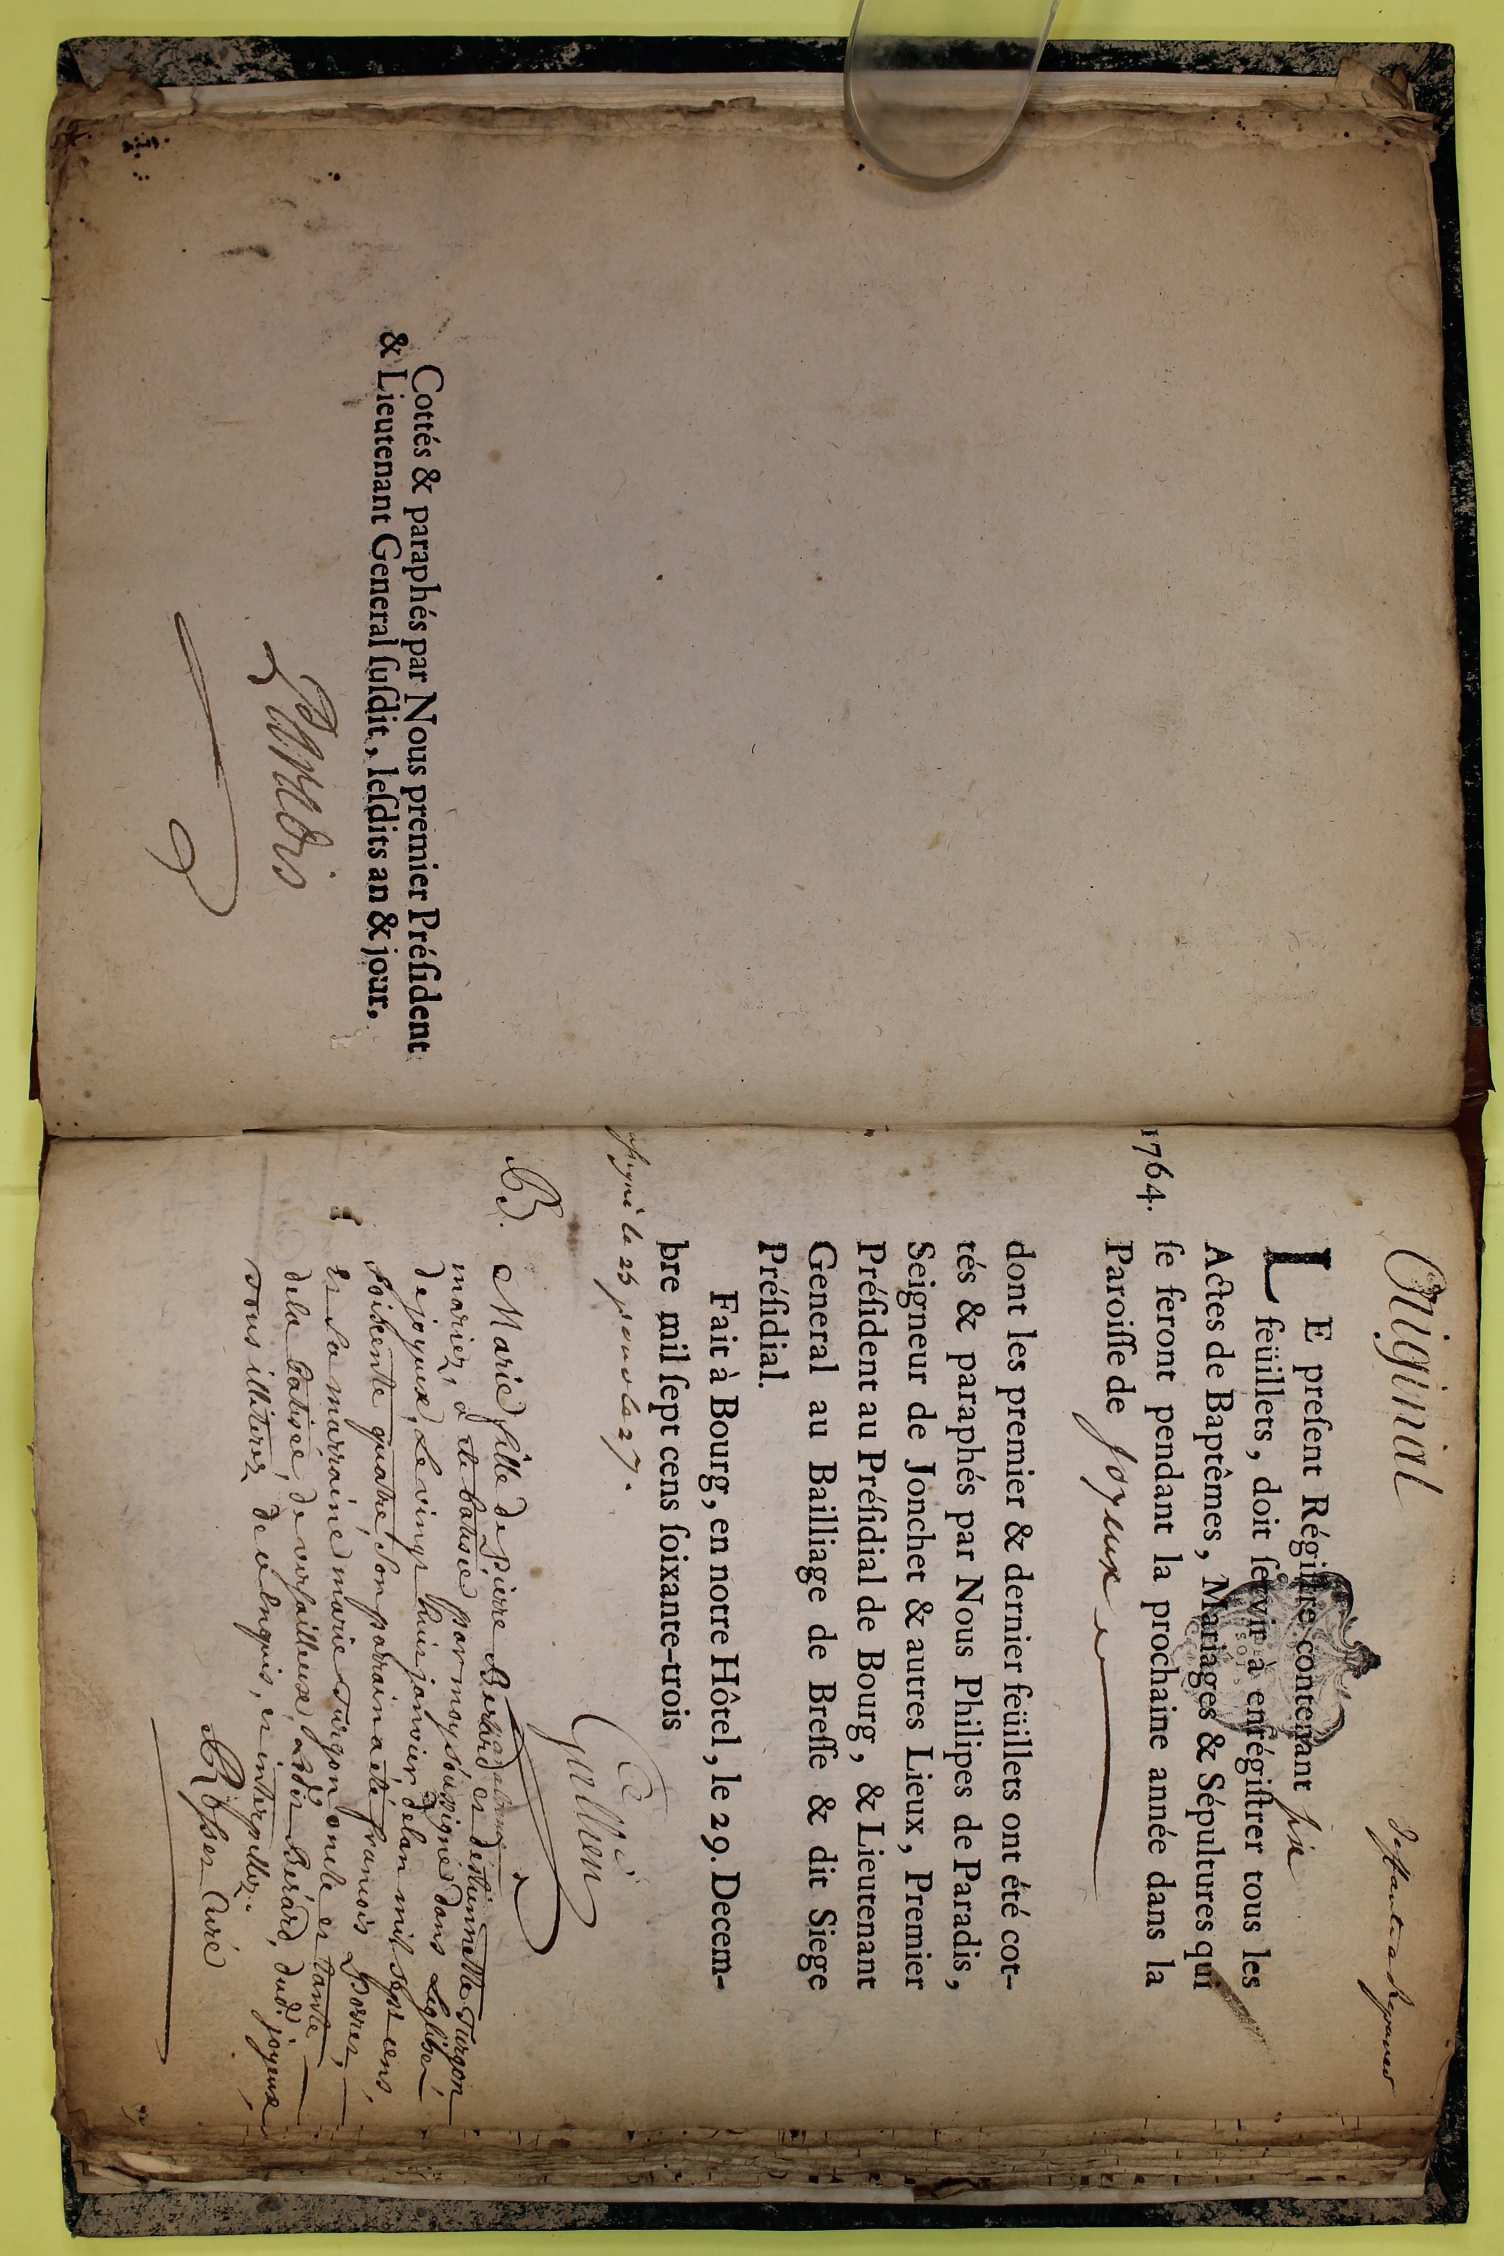 Cottés & paraphés par Nous premier Préſident
& Lieutenant General ſuſdit, leſdits an & jour.
Paradis
Original
LE preſent Régiſtre contenant six
feüillets, doit ſervir à enrégiſtrer tous les
Actes de Baptêmes, Mariages & Sépultures qui
ſe feront pendant la prochaine année dans la
1764.
Paroiſſe de Joyeux
dont les premier & dernier feüillets ont été cot-
tés & paraphés par Nous Philipes de Paradis,
Seigneur de Jonchet & autres Lieux, Premier
Préſident au Préſidial de Bourg, & Lieutenant
General au Bailliage de Breſſe & dit Siege
Préſidial.
Fait à Bourg, en notre Hôtel, le 29. Decem-
bre mil ſept cens ſoixante-trois
le 25 le 27.
B.
Marie fille de Pierre Berard et detiennette Turgon
mariez, a ete batisée par moy soussigné dans leglise
de joyeux, le vingt huit janvier delan mil sept cens
soixente quatre, son parrain a ete francois
et sa marraine marie Turgon oncle et tante,
dela batisée, de versailleux, Berard, dud. joyeux,
tous illiterez de ce enquis, et interpellez.
Curé